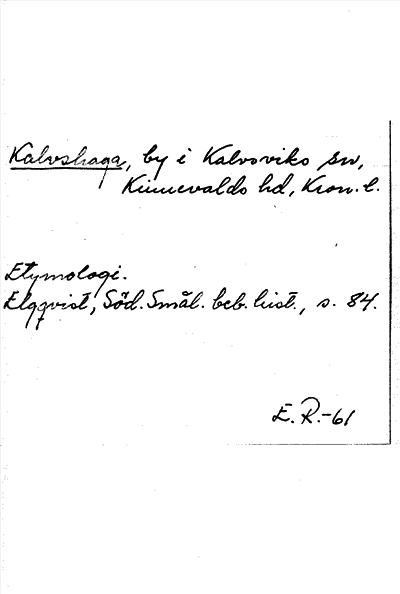 Kalvshaga, by i Kalvsviks sn,
Kinnevalds hd, Kron. l.
Etymologi.
Elqqvist, Söd. Smål. beb. hist., s. 84.
E. R. -61